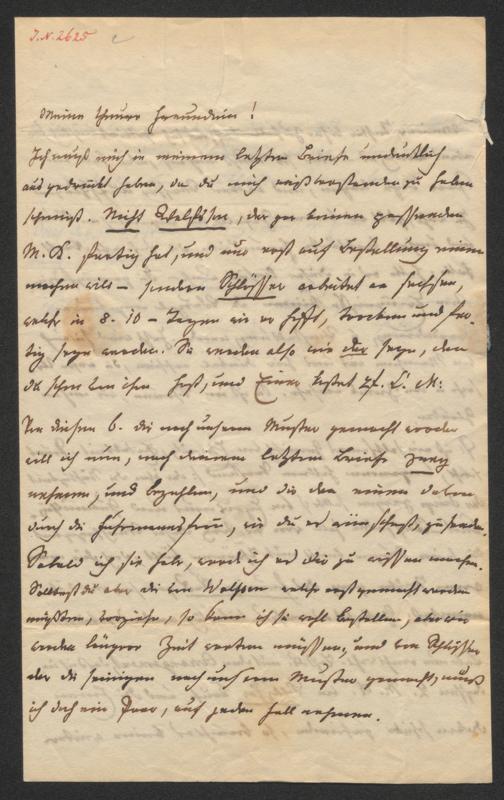 J.N. 2625
Meine theure Freundin!
Ich muß mich in meinem letzten Briefe undeutlich
ausgedrückt haben, da du mich mißverstanden zu haben
scheinst. Nicht Welhsen, der gar keinen passenden
M. K. fertig hat, und nur erst auf Bestellung einen
machen will – sondern Schlösser arbeitet an sechsen,
welche in 8-10 – Tagen wie er hofft, trocken und fer-
tig seyn werden. Sie werden also wie der seyn, den
du schon von ihm hast, und Einer kostet
Von diesen 6. die nach unserm Muster gemacht worden
will ich nun, nach deinem letzten Briefe zwey
nehmen, und bezahlen, und dir den einen davon
durch die wie du es wünschest, zusenden.
Sobald ich sie habe, werde ich es dir zu wissen machen.
Solltest du aber die von welche erst gemacht werden
müßten, vorziehn, so kann ich sie wohl bestellen, aber wir
werden länger Zeit warten müssen, und von Schlösser
der die seinigen nach unserm Muster gemacht, muß
ich doch ein Paar, auf jeden Fall nehmen.